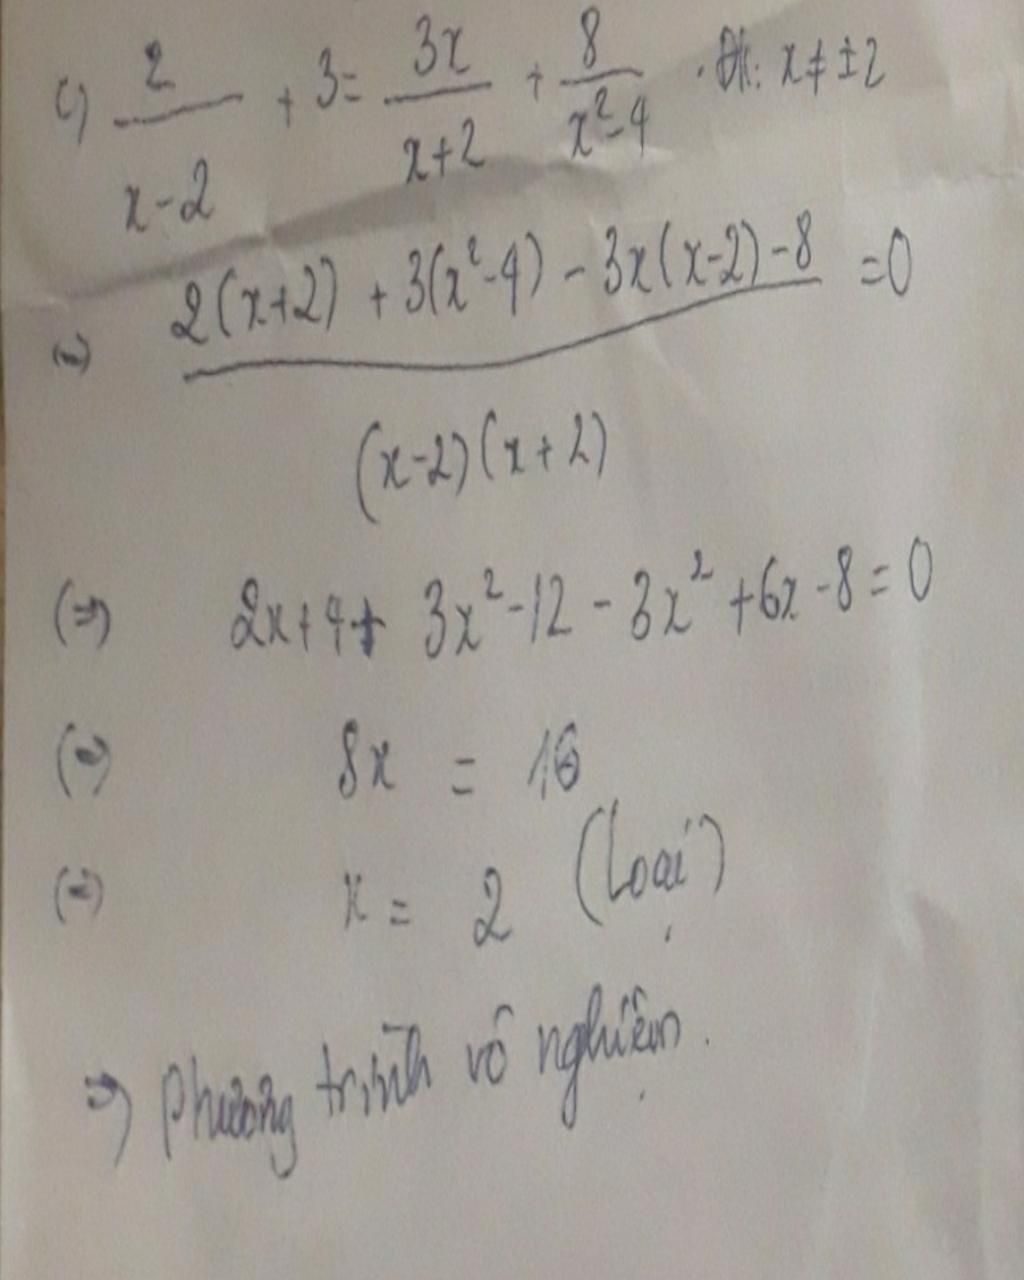 c) 2/(x-2) + 3 = 3x/(x+2) + 8/(x²-4) . Đk: x ≠ ±2
(=) (2(x+2) + 3(x²-4) - 3x(x-2) - 8)/((x-2)(x+2)) = 0
(=) 2x + 4 + 3x² - 12 - 3x² + 6x - 8 = 0
(=) 8x = 16
(=) x = 2 (Loại)
=) Phương trình vô nghiệm.